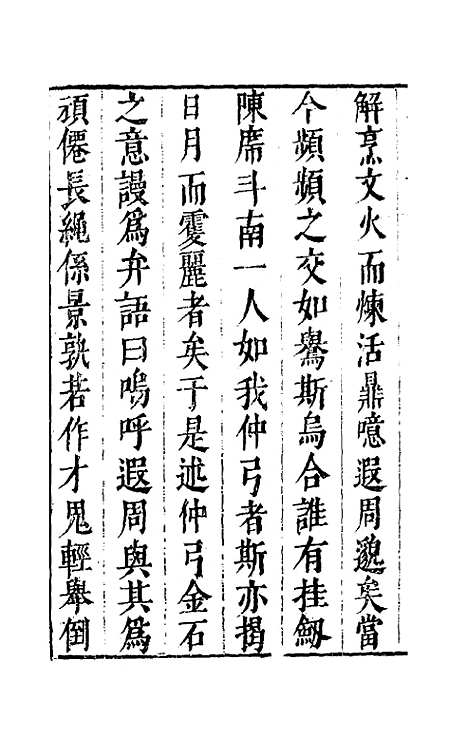 解烹文火而煉活鼎噫遐周邈矣當
今頻頻之交如鸒斯烏合誰有挂劒
陳席斗南一人如我仲弓者斯亦揭
日月而雙麗者矣于是述仲弓金石
之意謾爲弁語曰嗚呼遐周與其爲
頑僊長繩係景孰若作才鬼輕舉倒